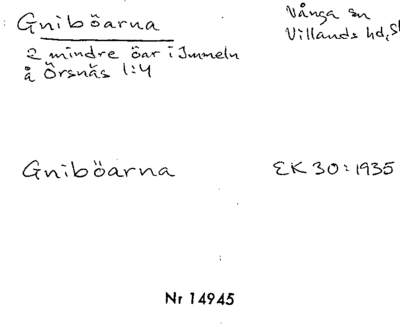 Gniböarna
Vånga sn
Villands hd,
2 mindre öar i Immeln
å Örsnäs 1:4
Gniböarna
EK 30:1935
Nr 14945